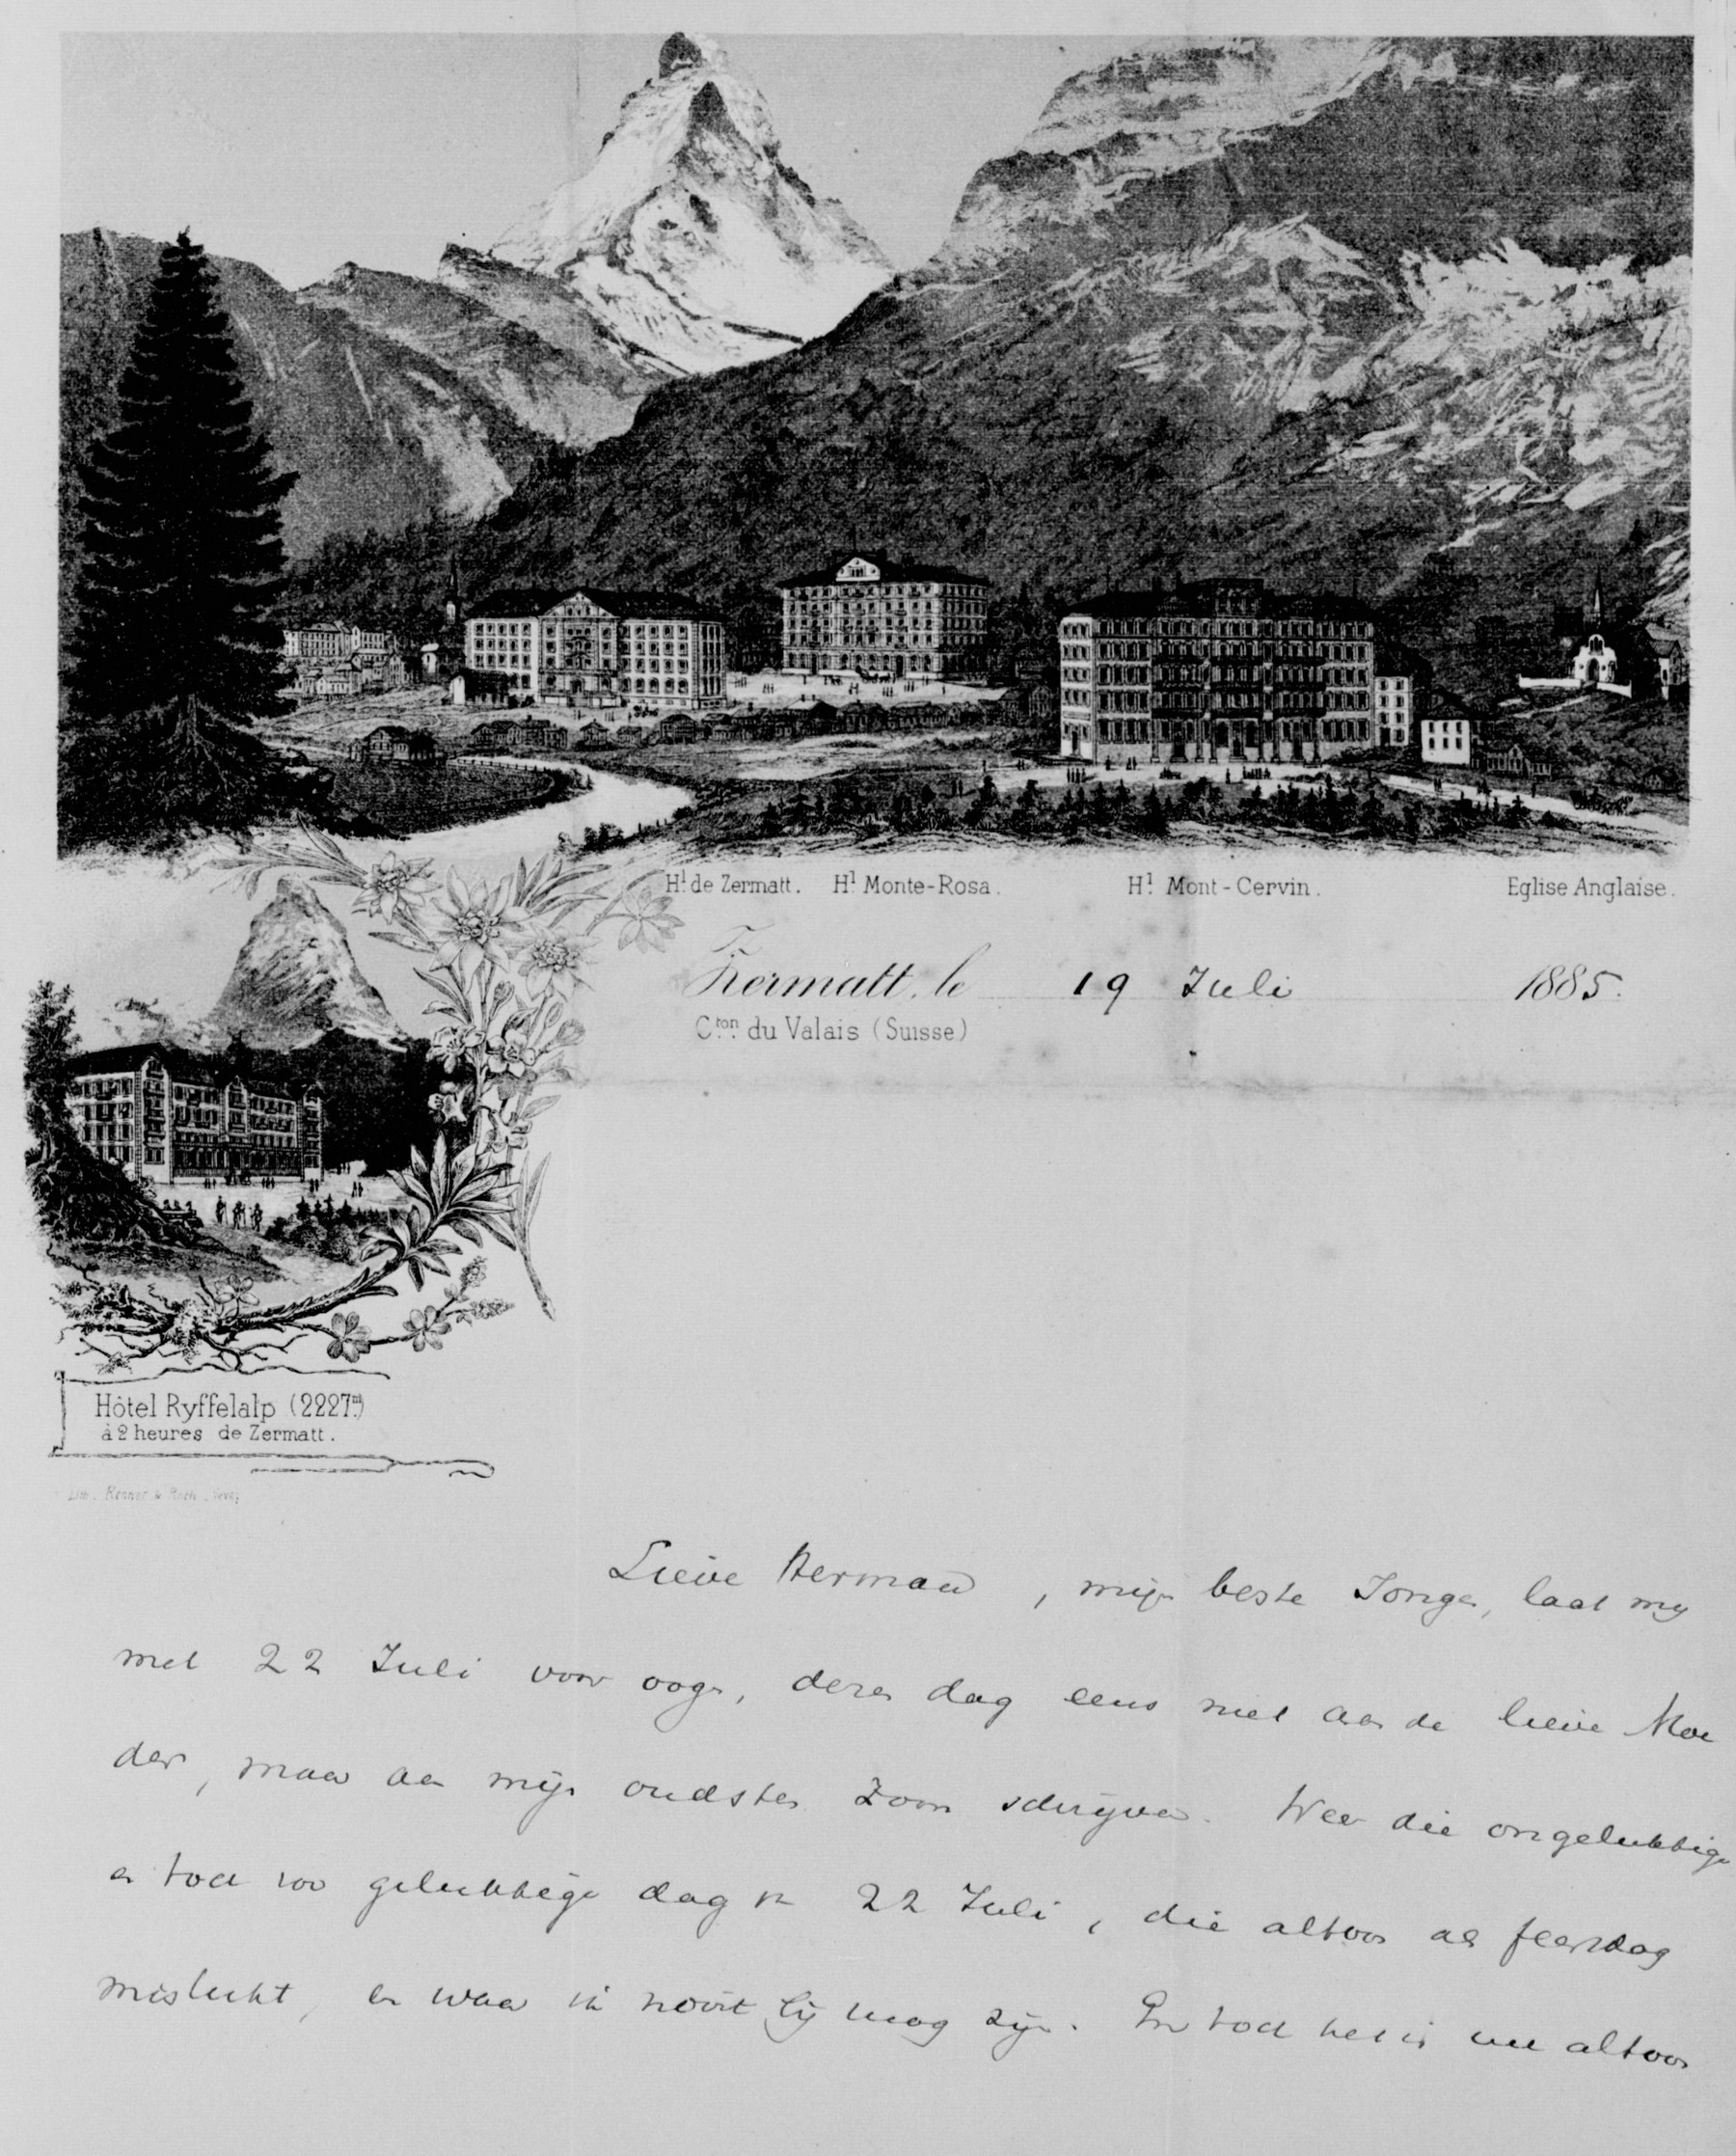 Hl de Zermatt. Hl Monte-Rosa. Hl Mont-Cervin. Eglise Anglaise.
Zermatt, le 19 Juli 1885.
Cton du Valais (Suisse)
Hôtel Ryffelalp (2227m)
à 2 heures de Zermatt.
Lith.
Lieve Herman, mijn beste Jongen, laat mij
met 22 Juli voor oogen, dezen dag eens niet aan de lieve Moe
der, maar aan mijn oudsten zoon schrijven. Weer die ongelukkige
en toch zoo gelukkige dag v. 22 Juli, die altoos als feestdag
mislukt, en waar ik nooit bij mag zijn. En toch het is me altoos